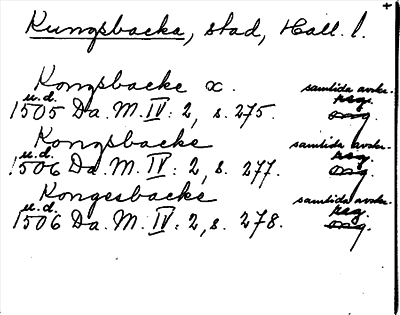 Kungsbacka, stad, Hall. l.
Kongsbacke x. samtida avskr.
u.d. reg.
1505 Da. M. IV: 2, s. 275. orig.
Kongsbacke samtida avskr.
u.d. reg.
1506 Da. M. IV: 2, s. 277. orig.
Kongesbacke samtida avskr.
u.d. reg.
1506 Da. M. IV: 2, s. 278. orig.